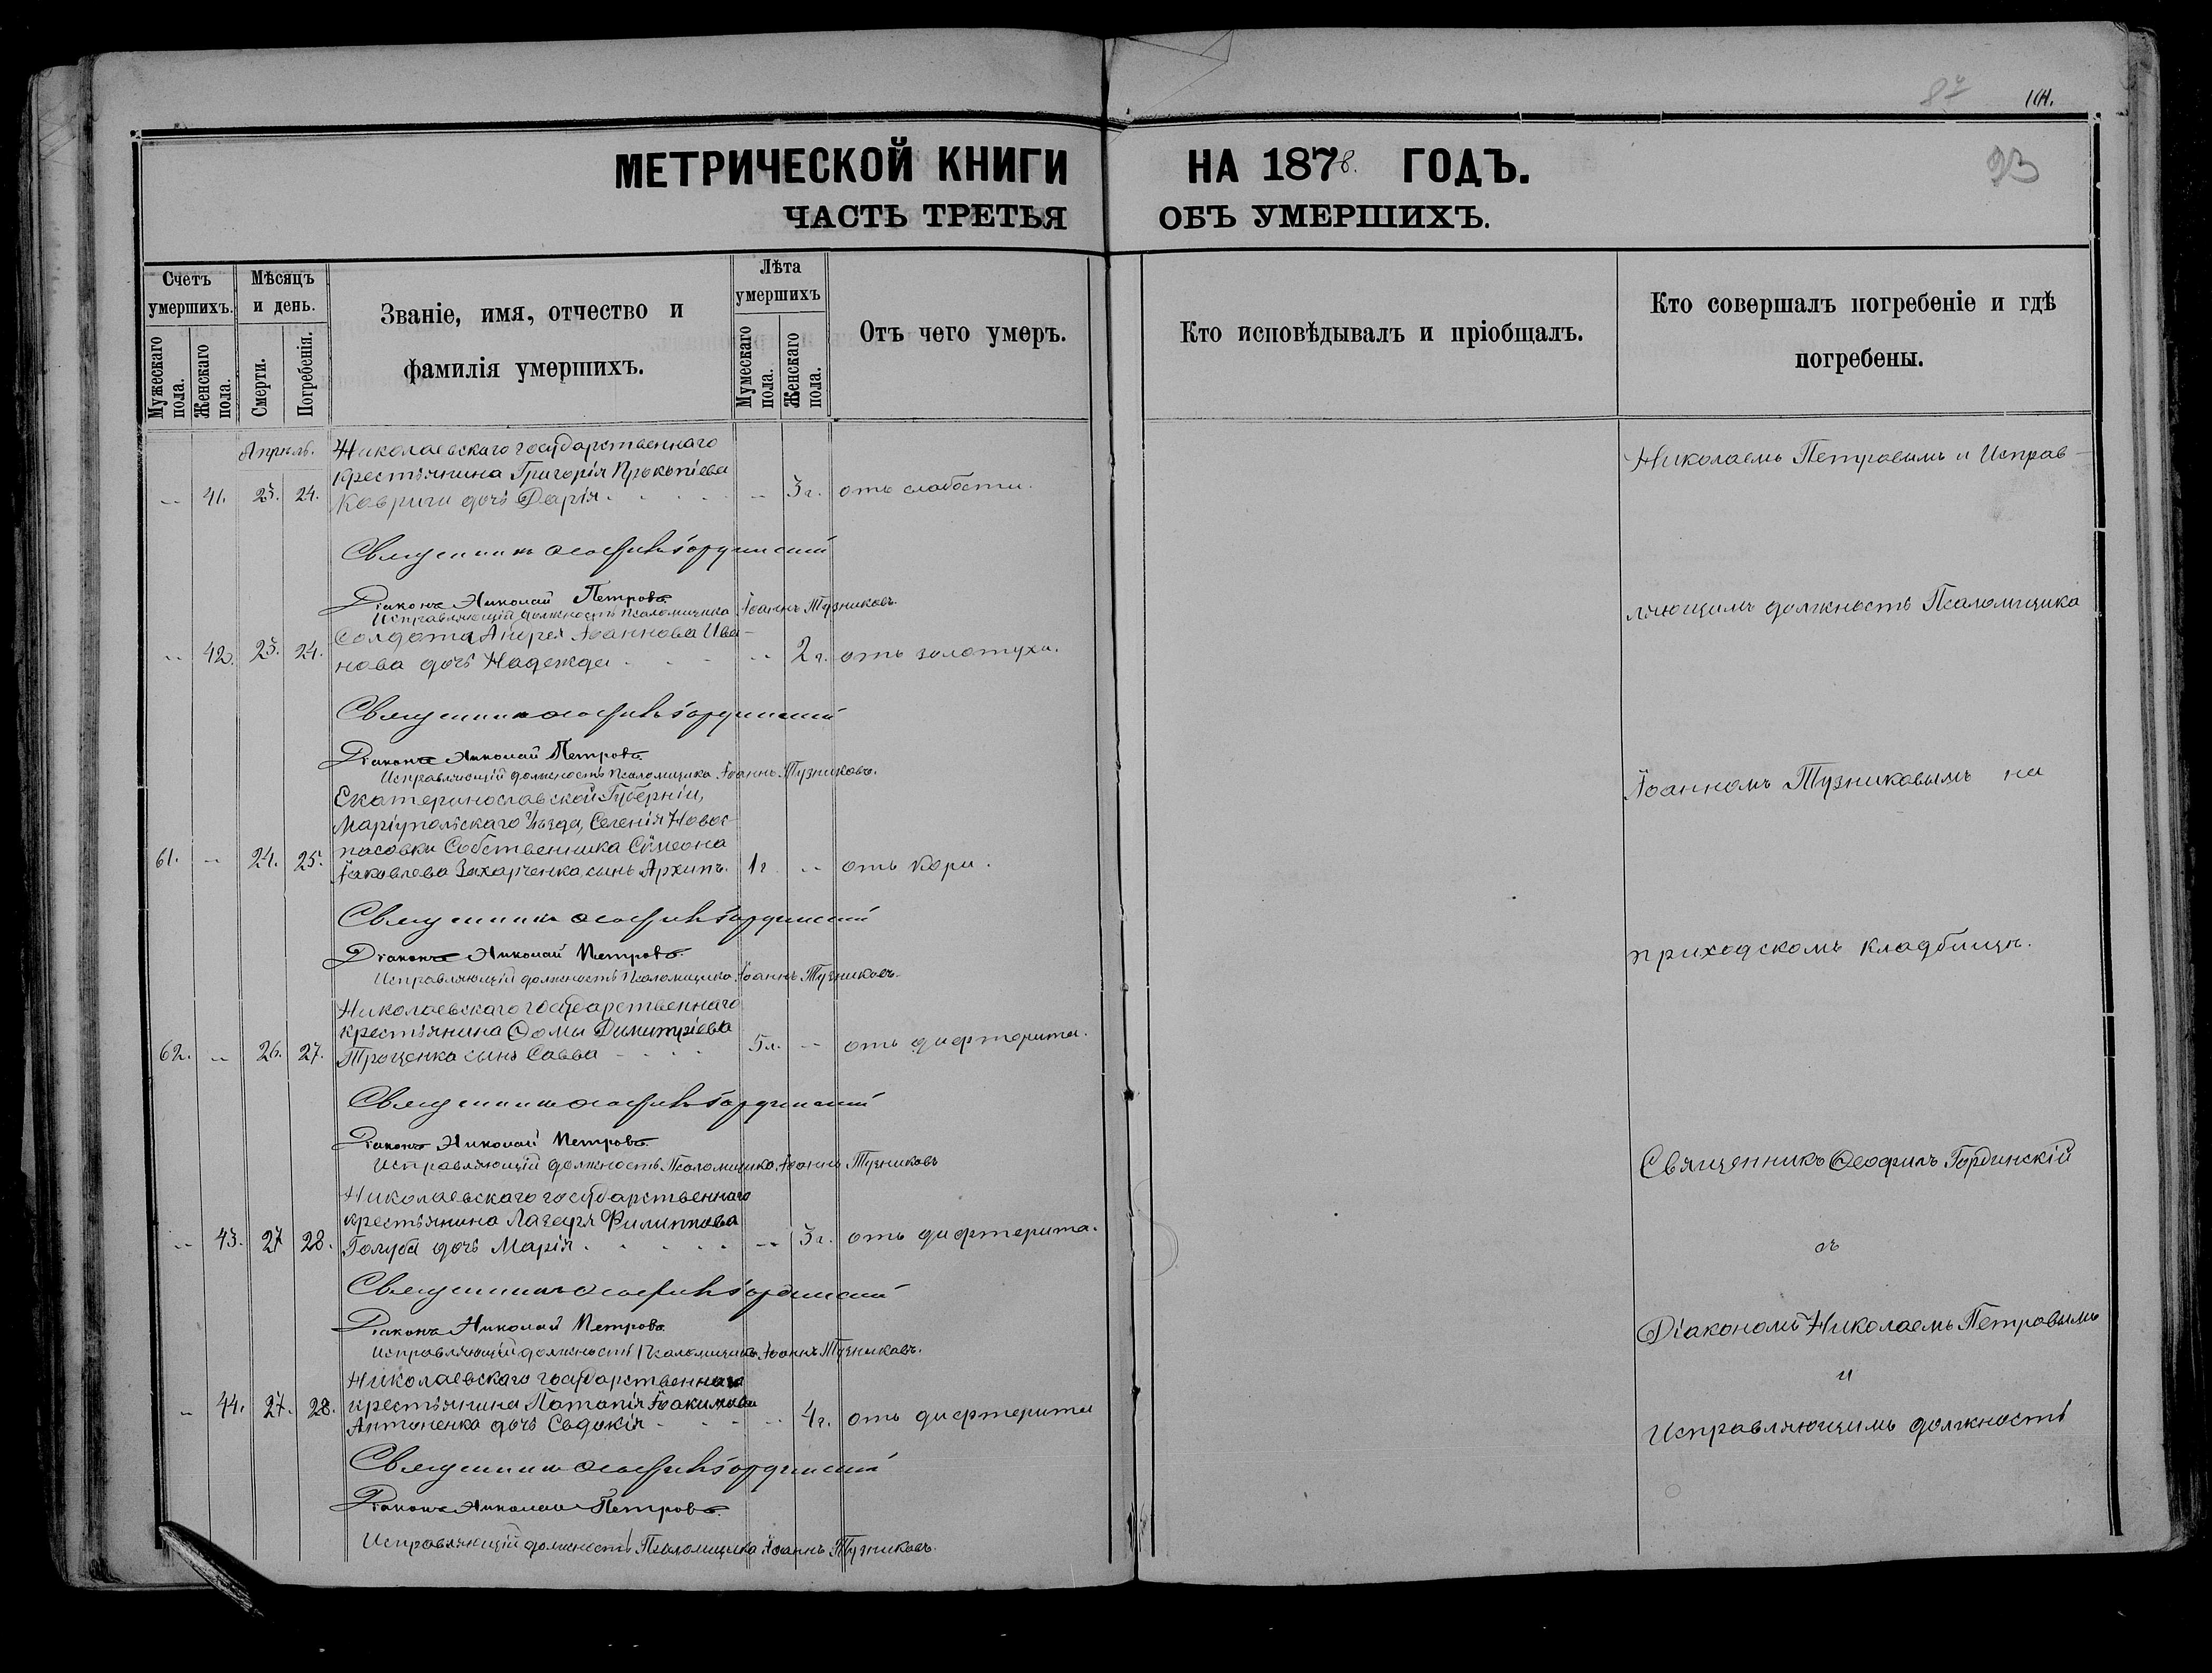 87
МЕТРИЧЕСКОЙ КНИГИ НА 1878. ГОДЪ.
93
ЧАСТЬ ТРЕТЬЯ ОБЪ УМЕРШИХЪ.
Счетъ умершихъ.
Мужескаго пола.
Женскаго пола.
Мѣсяцъ и день.
Смерти.
Погребенія.
Званіе, имя, отчество и
фамилія умершихъ.
Лѣта умершихъ
Мужескаго пола.
Женскаго пола.
Отъ чего умеръ.
Кто исповѣдывалъ и пріобщалъ.
Кто совершалъ погребеніе и гдѣ
погребены.
Апрѣль. Николаевскаго государственнаго
крестьянина Григорія Прокопіева
-- 41. 23. 24. Ковриги дочь Дарія -- 3 г. отъ слабости.
Священникъ Ѳеофилъ Гординскій
Діаконъ Николай Петровъ
Исправляющій должность Псаломщика Іоаннъ Тузниковъ.
Солдата Андрея Іоаннова Ива-
-- 42. 23. 24. нова дочь Надежда -- 2 г. отъ золотухи.
Священникъ Ѳеофилъ Гординскій
Діаконъ Николай Петровъ
Исправляющій должность Псаломщика Іоаннъ Тузниковъ.
Екатеринославской Губерніи,
Маріупольскаго Уѣзда, Селенія Новос-
пасовки Собственника Сѵмеона
61. -- 24. 25. Іаковлева Захарченка сынъ Архипъ. 1 г -- отъ кори.
Священникъ Ѳеофилъ Гординскій
Діаконъ Николай Петровъ.
Исправляющій должность Псаломщика Іоаннъ Тузниковъ.
Николаевскаго государственнаго
крестьянина Ѳомы Димитріева
62. -- 26. 27. Троценка сынъ Савва 5 л. -- отъ дифтерита.
Священникъ Ѳеофилъ Гординскій
Діаконъ Николай Петровъ.
Исправляющій должность Псаломщика Іоаннъ Тузниковъ
Николаевскаго государственнаго
крестьянина Лазаря Филиппова
-- 43. 27 28. Голуба дочь Марія -- 3 г. отъ дифтерита.
Священникъ Ѳеофилъ Гординскій
Діаконъ Николай Петровъ
Исправляющій должность Псаломщика Іоаннъ Тузниковъ.
Николаевскаго государственнаго
крестьянина Потапія Іоакимова
-- 44. 27. 28. Антоненка дочь Евдокія -- 4 г. отъ дифтерита
Священникъ Ѳеофилъ Гординскій
Діаконъ Николай Петровъ.
Исправляющій должность Псаломщика Іоаннъ Тузниковъ.
Николаемъ Петровымъ и Исправ-
ляющимъ должность Псаломщика
Іоанномъ Тузниковымъ на
приходскомъ кладбищѣ.
Священникъ Ѳеофилъ Гординскій
съ
Діакономъ Николаемъ Петровымъ
и
Исправляющимъ должность